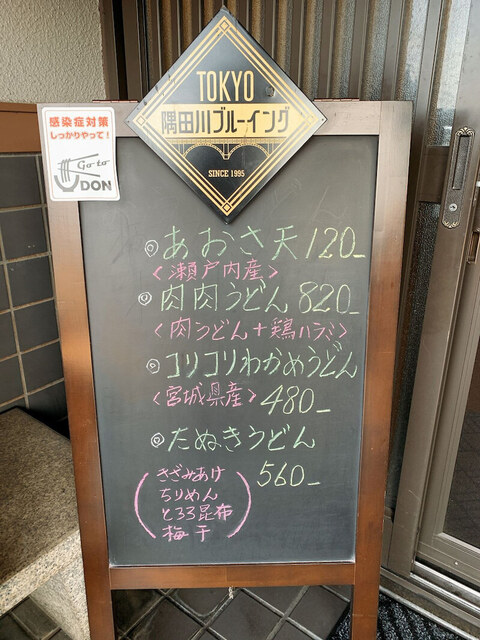 TOKYO
隅田川ブルーイング
SINCE 1995
感染症対策
しっかりやって!
Go to
UDON
◎あおさ天120_
<瀬戸内産>
◎肉肉うどん820_
<肉うどん+鶏ハラミ>
◎コリコリわかめうどん
<宮城県産>480_
◎たぬきうどん
560_
(きざみあげ
ちりめん
とろろ昆布
梅干)